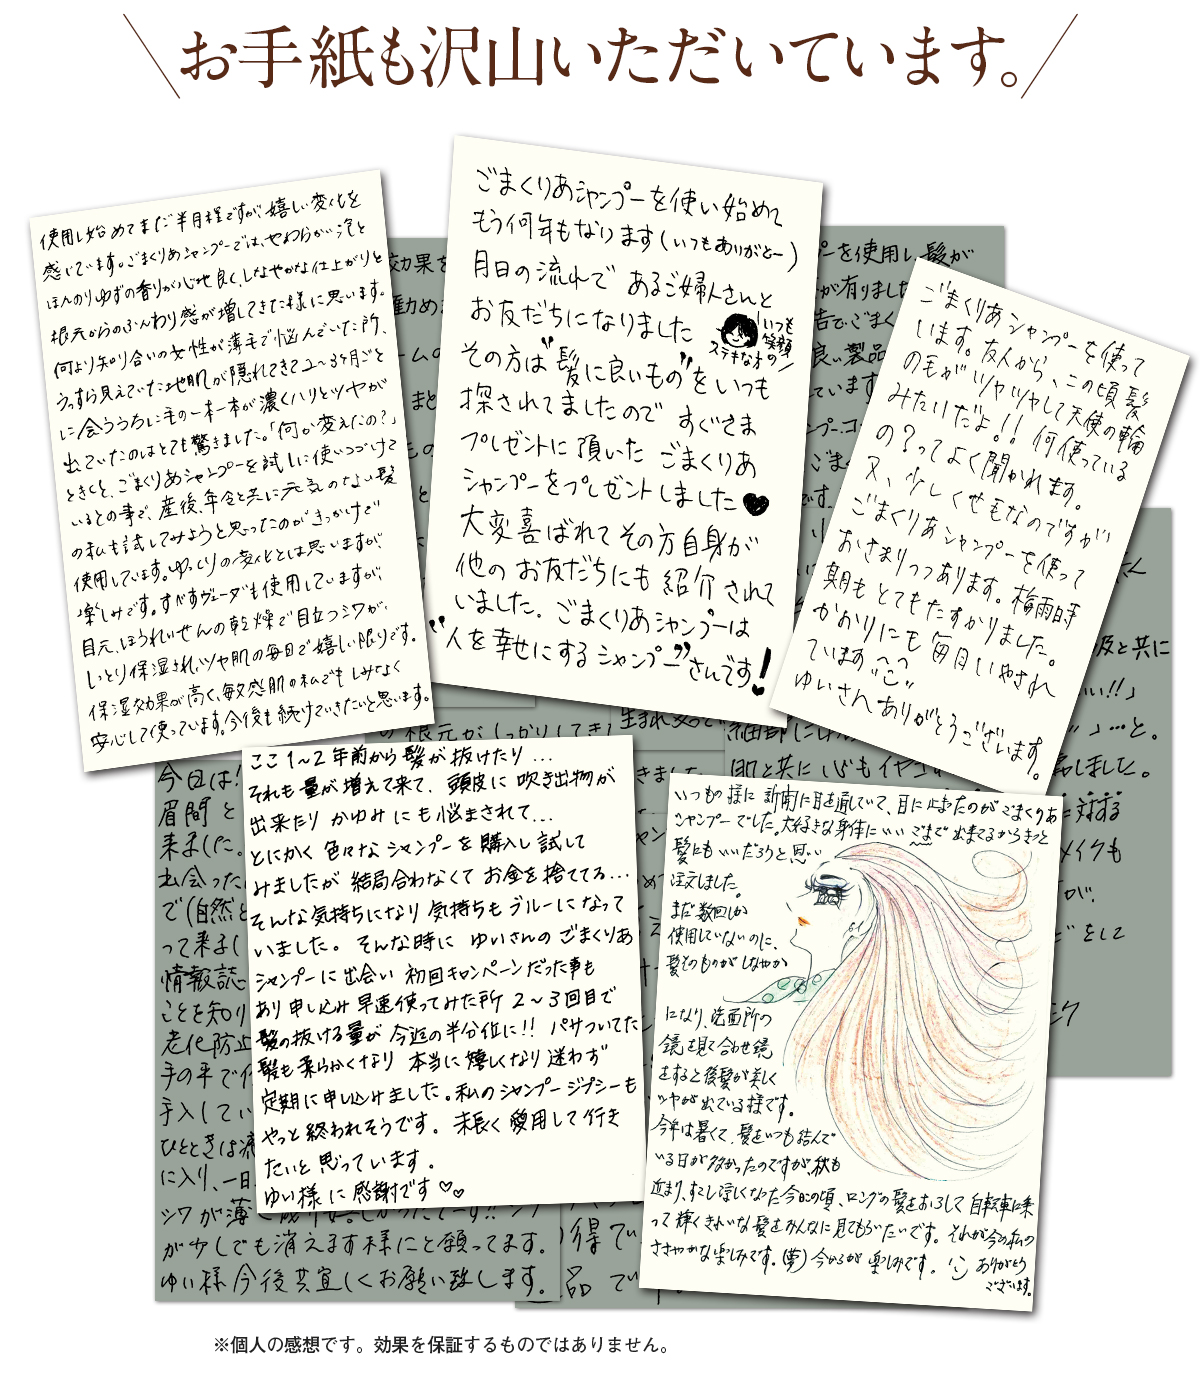 お手紙も沢山いただいています。
使用し始めてまだ半月程ですが、嬉しい変化を
感じています。ごまくりあシャンプーでは、やわらかい泡と
ほんのりゆずの香りが心地良く、しなやかな仕上がりと
根元からのふんわり感が増してきた様に思います。
何より知り合いの女性が薄毛で悩んでいた所、
うっすら見えていた地肌が隠れてきて2〜3ヶ月ごと
に会ううちに毛の一本一本が濃くハリとツヤが
出ていたのはとても驚きました。「何か変えたの?」
ときくと、ごまくりあシャンプーを試しに使いつづけて
いるとの事で、産後、年令と共に元気のない髪
の私も試してみようと思ったのがきっかけで
使用しています。ゆっくりの変化とは思いますが、
楽しみです。すがすヴェーダも使用していますが、
目元、ほうれいせんの乾燥で目立つシワが、
しっとり保湿され、ツヤ肌の毎日で嬉しい限りです。
保湿効果が高く、敏感肌の私でもしみなく
安心して使っています。今後も続けていきたいと思います。
ごまくりあシャンプーを使い始めて
もう何年もなります(いつもありがとー)
月日の流れで あるご婦人さんと
お友だちになりました
いつも
笑顔の
ステキな方
その方は"髪に良いもの"をいつも
探されてましたので すぐさま
プレゼントに頂いた ごまくりあ
シャンプーをプレゼントしました♥
大変喜ばれて その方自身が
他の お友だちにも 紹介されて
いました. ごまくりあシャンプーは
"人を幸せにするシャンプー"さんです!
ごまくりあシャンプーを使って
います。友人から、この頃髪
の毛がツヤツヤして天使の輪
みたいだよ!! 何使っている
の?ってよく聞かれます。
又、少しくせ毛なのですが
ごまくりあシャンプーを使って
おさまりつつあります。梅雨時
期もとてもたすかりました。
かおりにも毎日いやされ
ています
ゆいさんありがとうございます。
ここ1〜2年前から髪が抜けたり...
それも量が増えて来て、頭皮に吹き出物が
出来たりかゆみにも悩まされて...
とにかく色々なシャンプーを購入し試して
みましたが結局合わなくてお金を捨ててる...
そんな気持ちになり気持ちもブルーになって
いました。そんな時に ゆいさんのごまくりあ
シャンプーに出会い 初回キャンペーンだった事も
あり申し込み早速使ってみた所 2〜3回目で
髪の抜ける量が今迄の半分位に!! パサついてた
髪も柔らかくなり本当に嬉しくなり迷わず
定期に申し込けました。私のシャンプージプシーも
やっと終われそうです。末長く愛用して行き
たいと思っています。
ゆい様に感謝です♡♡
いつもの様に新聞に目を通していて、目に止まったのがごまくりあ
シャンプーでした。大好きな身体にいいごまで出来てるからきっと
髪にもいいだろうと思い
注文しました。
まだ数回しか
使用していないのに、
髪そのものがしなやか
になり、洗面所の
鏡を見て合わせ鏡
をすると後髪が美しく
ツヤが出ている様です。
今年は暑くて、髪をいつも結んで
いる日が多かったのですが、秋も
近まり、すこし涼しくなった今日この頃、ロングの髪をおろして自転車に乗
って輝くきれいな髪をみんなに見てもらいたいです。それが今の私の
ささやかな楽しみです。(夢)今からが楽しみです。ありがとう
ございます。
効果を
勧め
プーを使用し、髪が
が有りました
告でごまく
良い製品
ています
シャンプー、コン
ごまく
及と共に
い!!」
」…と。
しました。
に対する
メイクも
が、
どをして
の根元がしっかりしてき
肌と共に心もイヤ
今回は!
眉間と
来ました。
出会った
で(自然と
って来まし
情報誌
ことを知り
老化防止
手の平で
手入してい
ひとときは
に入り、一日
シワが薄く
が少しでも消えます様にと願ってます。
ゆい様今後共宜しくお願い致します。
得てい
品で
※個人の感想です。効果を保証するものではありません。